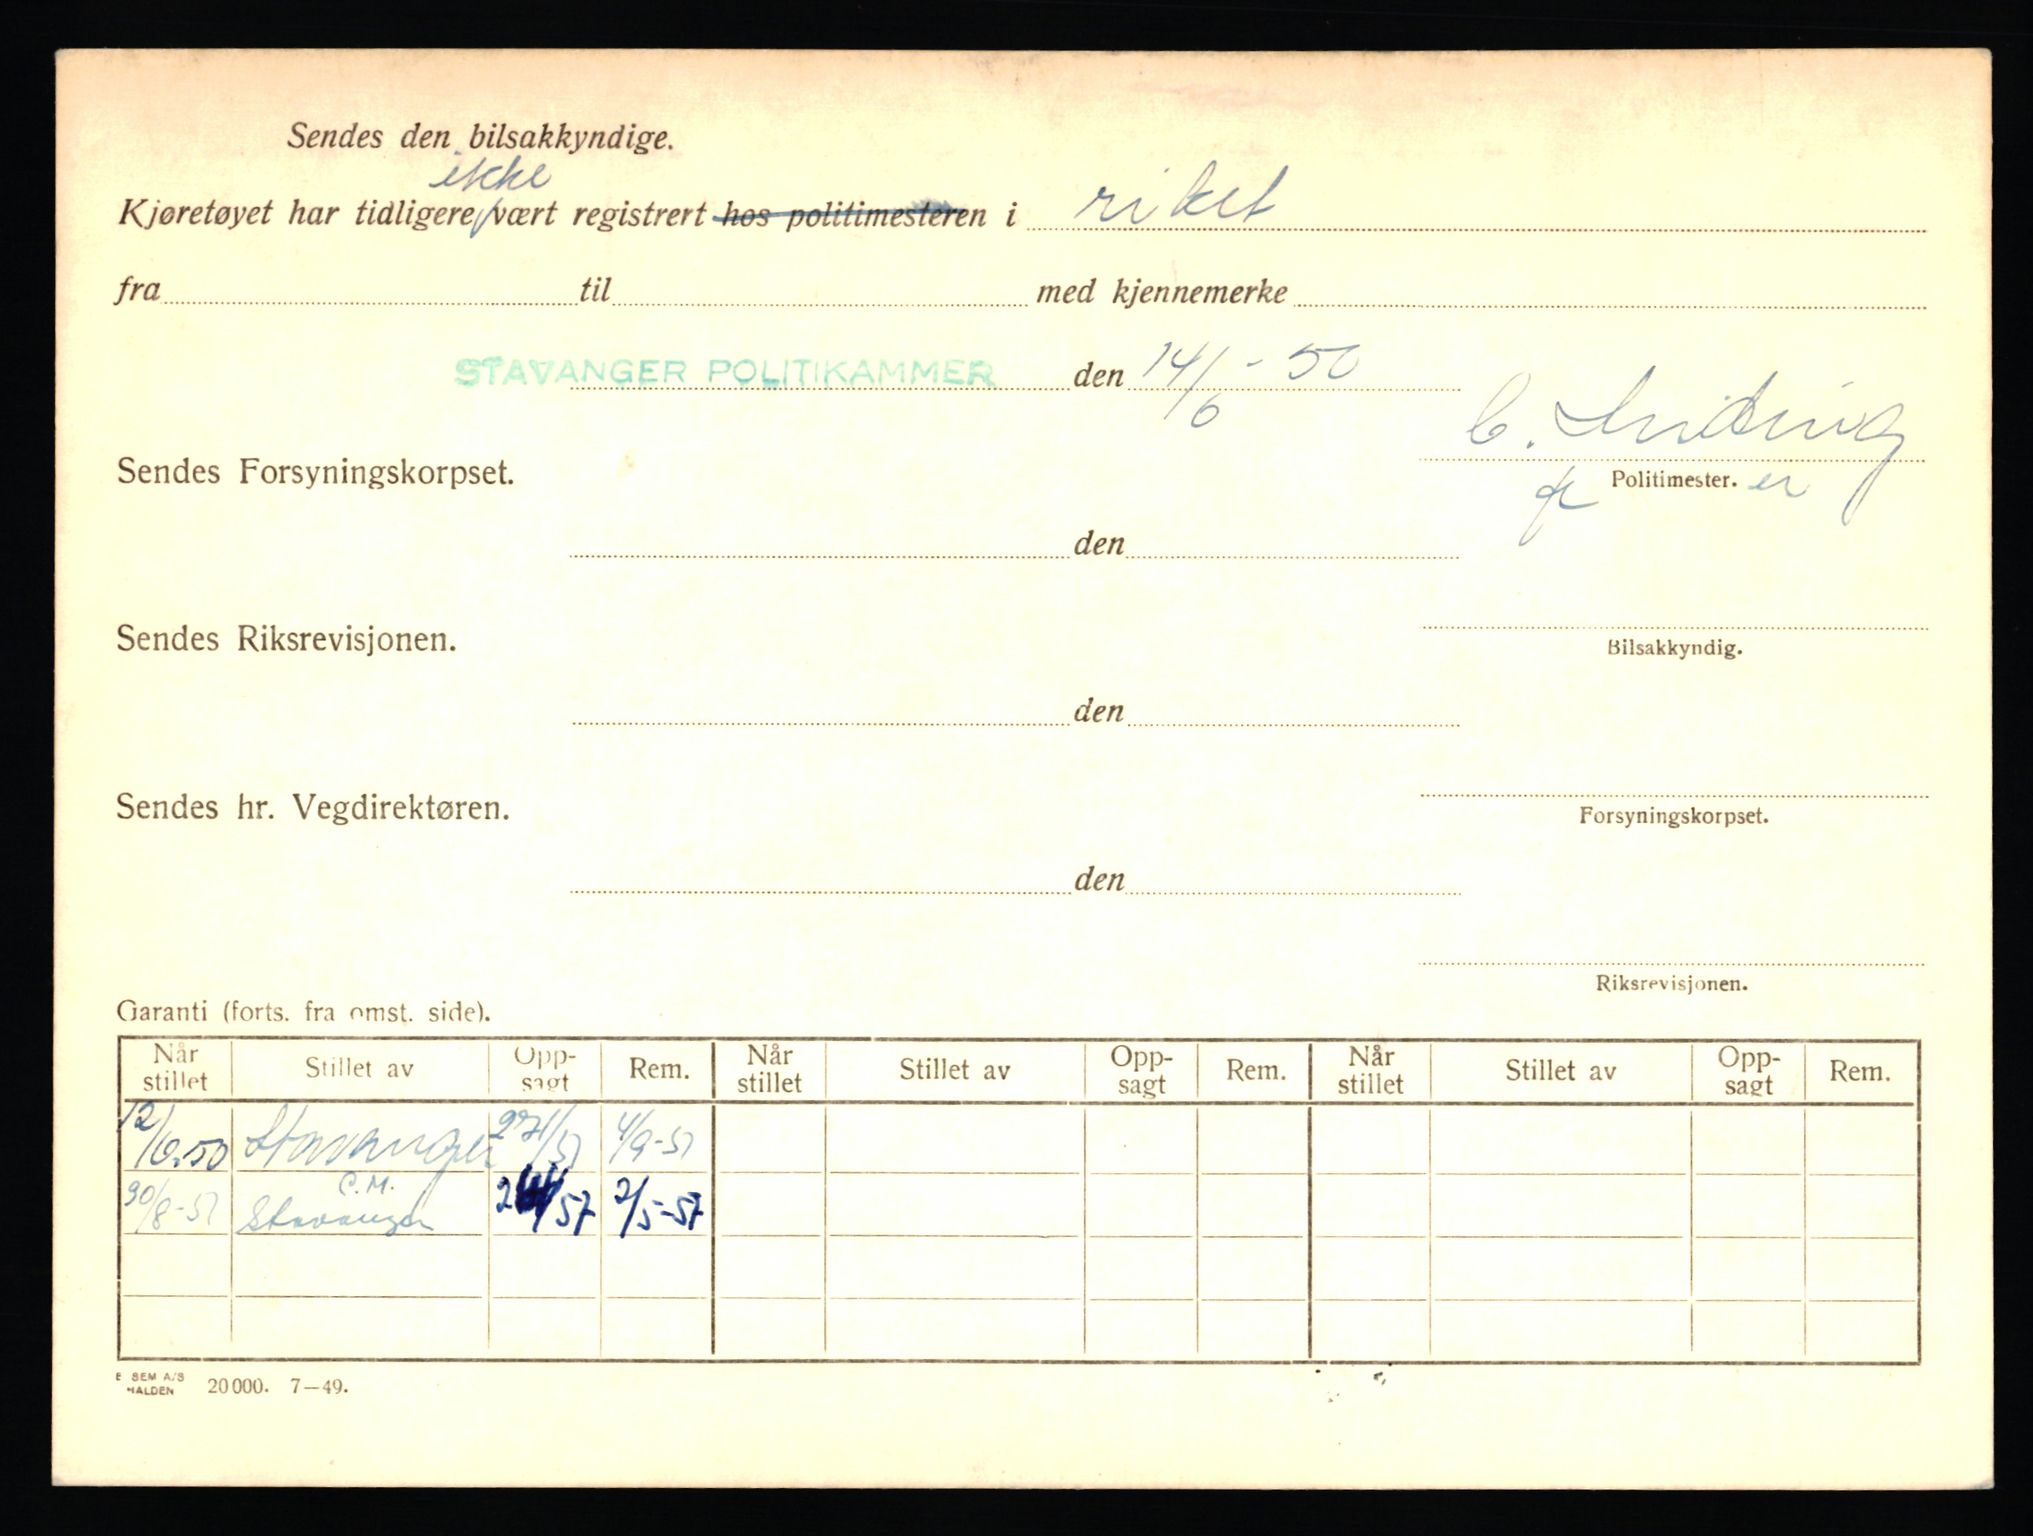 Sendes den bilsakkyndige.
ikke
Kjøretøyet har tidligere vært registrert hos politimesteren i riket
fra til med kjennemerke
STAVANGER POLITIKAMMER den 14/6 - 50
C.
Sendes Forsyningskorpset.
Politimester.
den
Sendes Riksrevisjonen.
Bilsakkyndig.
den
Sendes hr. Vegdirektøren.
Forsyningskorpset.
den
Riksrevisjonen.
Garanti (forts. fra omst. side).
Når stillet Stillet av Opp-sagt Rem. Når stillet Stillet av Opp-sagt Rem. Når stillet Stillet av Opp-sagt Rem.
12/6.50 Stavanger 4/9-51
C.M.
30/8-51 Stavanger 2/5-57
E SEM A/S
HALDEN 20000. 7-49.